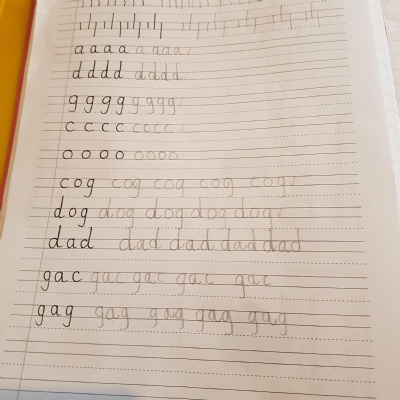 a a a a a a a a
d d d d d d d d
g g g g g g g g
c c c c c c c c
o o o o o o o o
cog cog cog cog cog
dog dog dog dog dog
dad dad dad dad dad
gac gac gac gac gac
gag gag gag gag gag